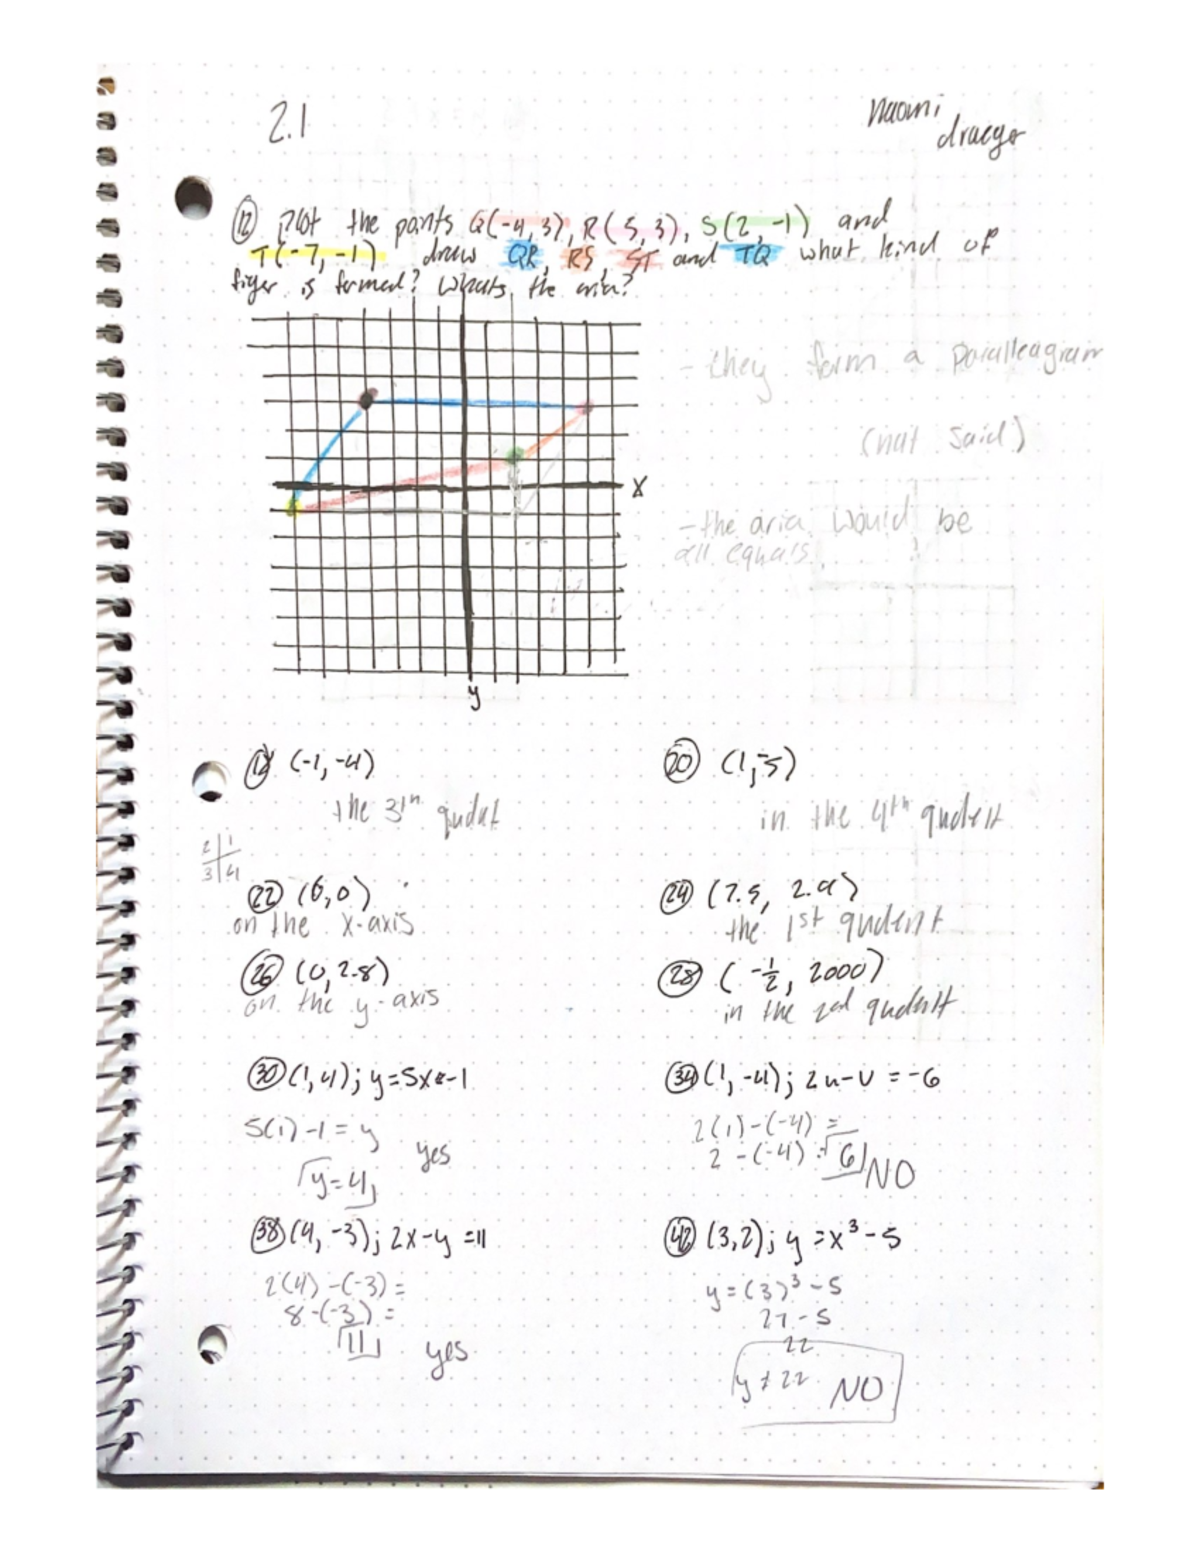 2.1
Naomi
draeger
(12) Plot the points Q(-4,3), R(5,3), S(2,-1) and
T(-7,-1) draw QR, RS, ST and TQ what kind of
figer is formed? Whats the aria?
- they form a paralleagram
(not said)
x
- the aria would be
all equals
y
(18) (-1,-4)
the 3th qudut
(20) (1,-5)
in the 4th qudent
2 1
3 4
(22) (6,0)
on the x-axis
(24) (7.5, 2.9)
the 1st qudent
(26) (0,2.8)
on the y-axis
(28) (-1/2, 2000)
in the 2nd qudent
(30) (1,4); y=5x-1
5(1)-1=y
yes
y=4
(34) (1,-4); 2u-v=-6
2(1)-(-4) =
2-(-4): 6 NO
(38) (4,-3); 2x-y=11
2(4)-(-3)=
8-(-3)=
11 yes
(42) (3,2); y=x³-5
y=(3)³-5
27-5
22
y≠22 NO